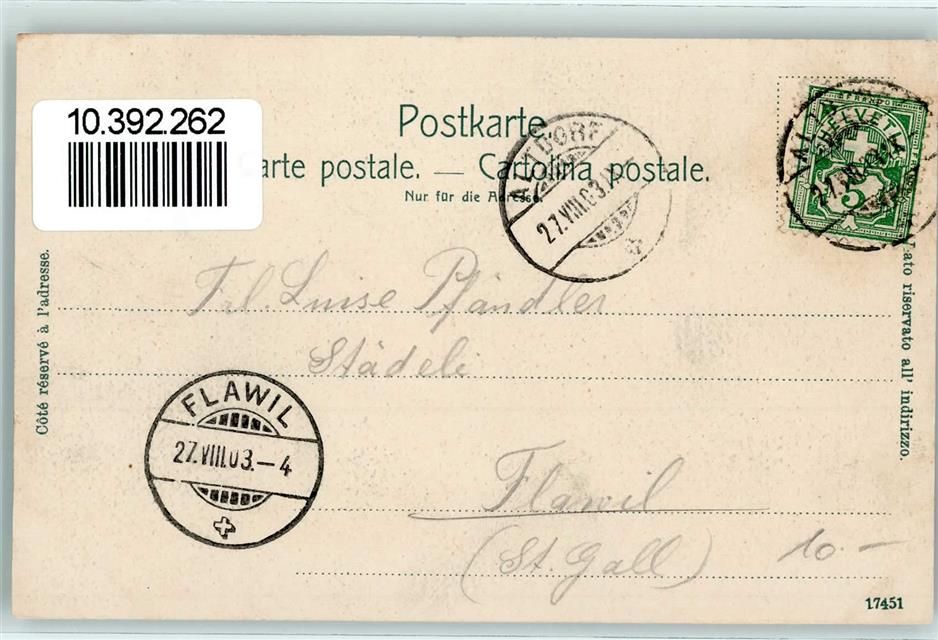 10.392.262
Postkarte.
arte postale. — Cartolina postale.
Nur für die Adresse.
HELVETIA
5
27.VIII.03.
Côté réservé à l'adresse.
Lato riservato all' indirizzo.
Frl. Luise Pfändler
Städeli
FLAWIL
27.VIII.03.–4
Flawil
(St. Gall)
10.–
17451